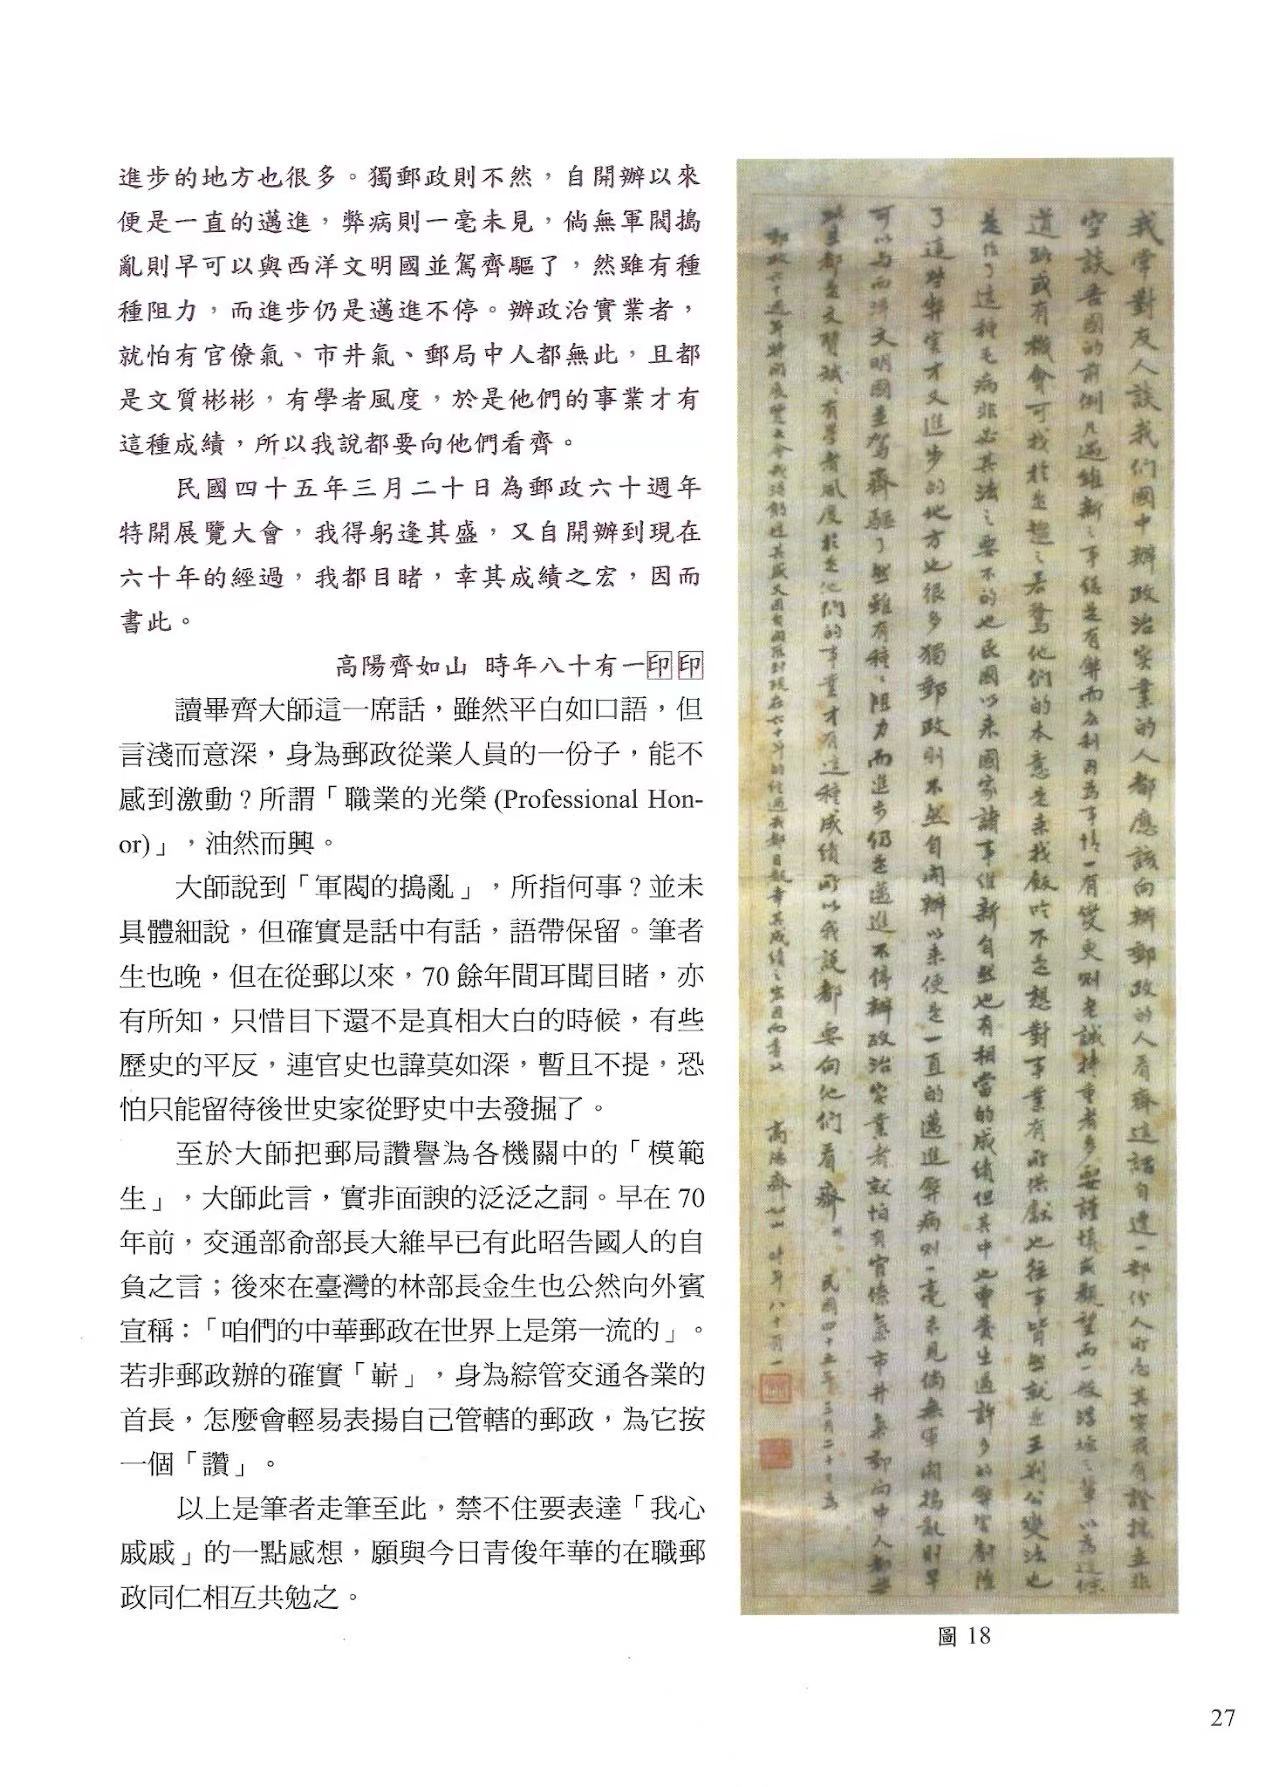 進步的地方也很多。獨郵政則不然，自開辦以來
便是一直的邁進，弊病則一毫未見，倘無軍閥搗
亂則早可以與西洋文明國並駕齊驅了，然雖有種
種阻力，而進步仍是邁進不停。辦政治實業者，
就怕有官僚氣、市井氣、郵局中人都無此，且都
是文質彬彬，有學者風度，於是他們的事業才有
這種成績，所以我說都要向他們看齊。
民國四十五年三月二十日為郵政六十週年
特開展覽大會，我得躬逢其盛，又自開辦到現在
六十年的經過，我都目睹，幸其成績之宏，因而
書此。
高陽齊如山 時年八十有一印印
讀畢齊大師這一席話，雖然平白如口語，但
言淺而意深，身為郵政從業人員的一份子，能不
感到激動？所謂「職業的光榮 (Professional Hon-
or)」，油然而興。
大師說到「軍閥的搗亂」，所指何事？並未
具體細說，但確實是話中有話，語帶保留。筆者
生也晚，但在從郵以來，70 餘年間耳聞目睹，亦
有所知，只惜目下還不是真相大白的時候，有些
歷史的平反，連官史也諱莫如深，暫且不提，恐
怕只能留待後世史家從野史中去發掘了。
至於大師把郵局讚譽為各機關中的「模範
生」，大師此言，實非面諛的泛泛之詞。早在 70
年前，交通部俞部長大維早已有此昭告國人的自
負之言；後來在臺灣的林部長金生也公然向外賓
宣稱：「咱們的中華郵政在世界上是第一流的」。
若非郵政辦的確實「嶄」，身為綜管交通各業的
首長，怎麼會輕易表揚自己管轄的郵政，為它按
一個「讚」。
以上是筆者走筆至此，禁不住要表達「我心
戚戚」的一點感想，願與今日青俊年華的在職郵
政同仁相互共勉之。
我常對友人談我們國中辦政治實業的人都應該向辦郵政的人看齊這話自遭一部份人所忌其實我有證據並非
空談吾國的前例凡遇維新之事總是有弊而無利因為事情一有變更則老誠持重者多要謹慎或觀望而一般之輩以為這條
道路或有機會可找於是趨之若鶩他們的本意是來找飯吃不是想對事業有所供獻也往事皆然就連王荊公變法也
是作了這種毛病非必其法之要不的也民國以來國家諸事維新自然也有相當的成績但其中也曾發生過許多的弊害剷除
了這些弊害才又進步的地方也很多獨郵政則不然自開辦以來便是一直的邁進弊病則一毫未見倘無軍閥搗亂則早
可以與西洋文明國並駕齊驅了然雖有種之阻力而進步仍是邁進不停辦政治實業者就怕有官僚氣市井氣郵局中人都無
此且都是文質彬彬有學者風度於是他們的事業才有這種成績所以我說都要向他們看齊 民國四十五年三月二十日為
郵政六十週年特開展覽大會我得躬逢其盛又自開辦到現在六十年的經過我都目睹幸其成績之宏因而書此 高陽齊如山 時年八十有一
圖 18
27